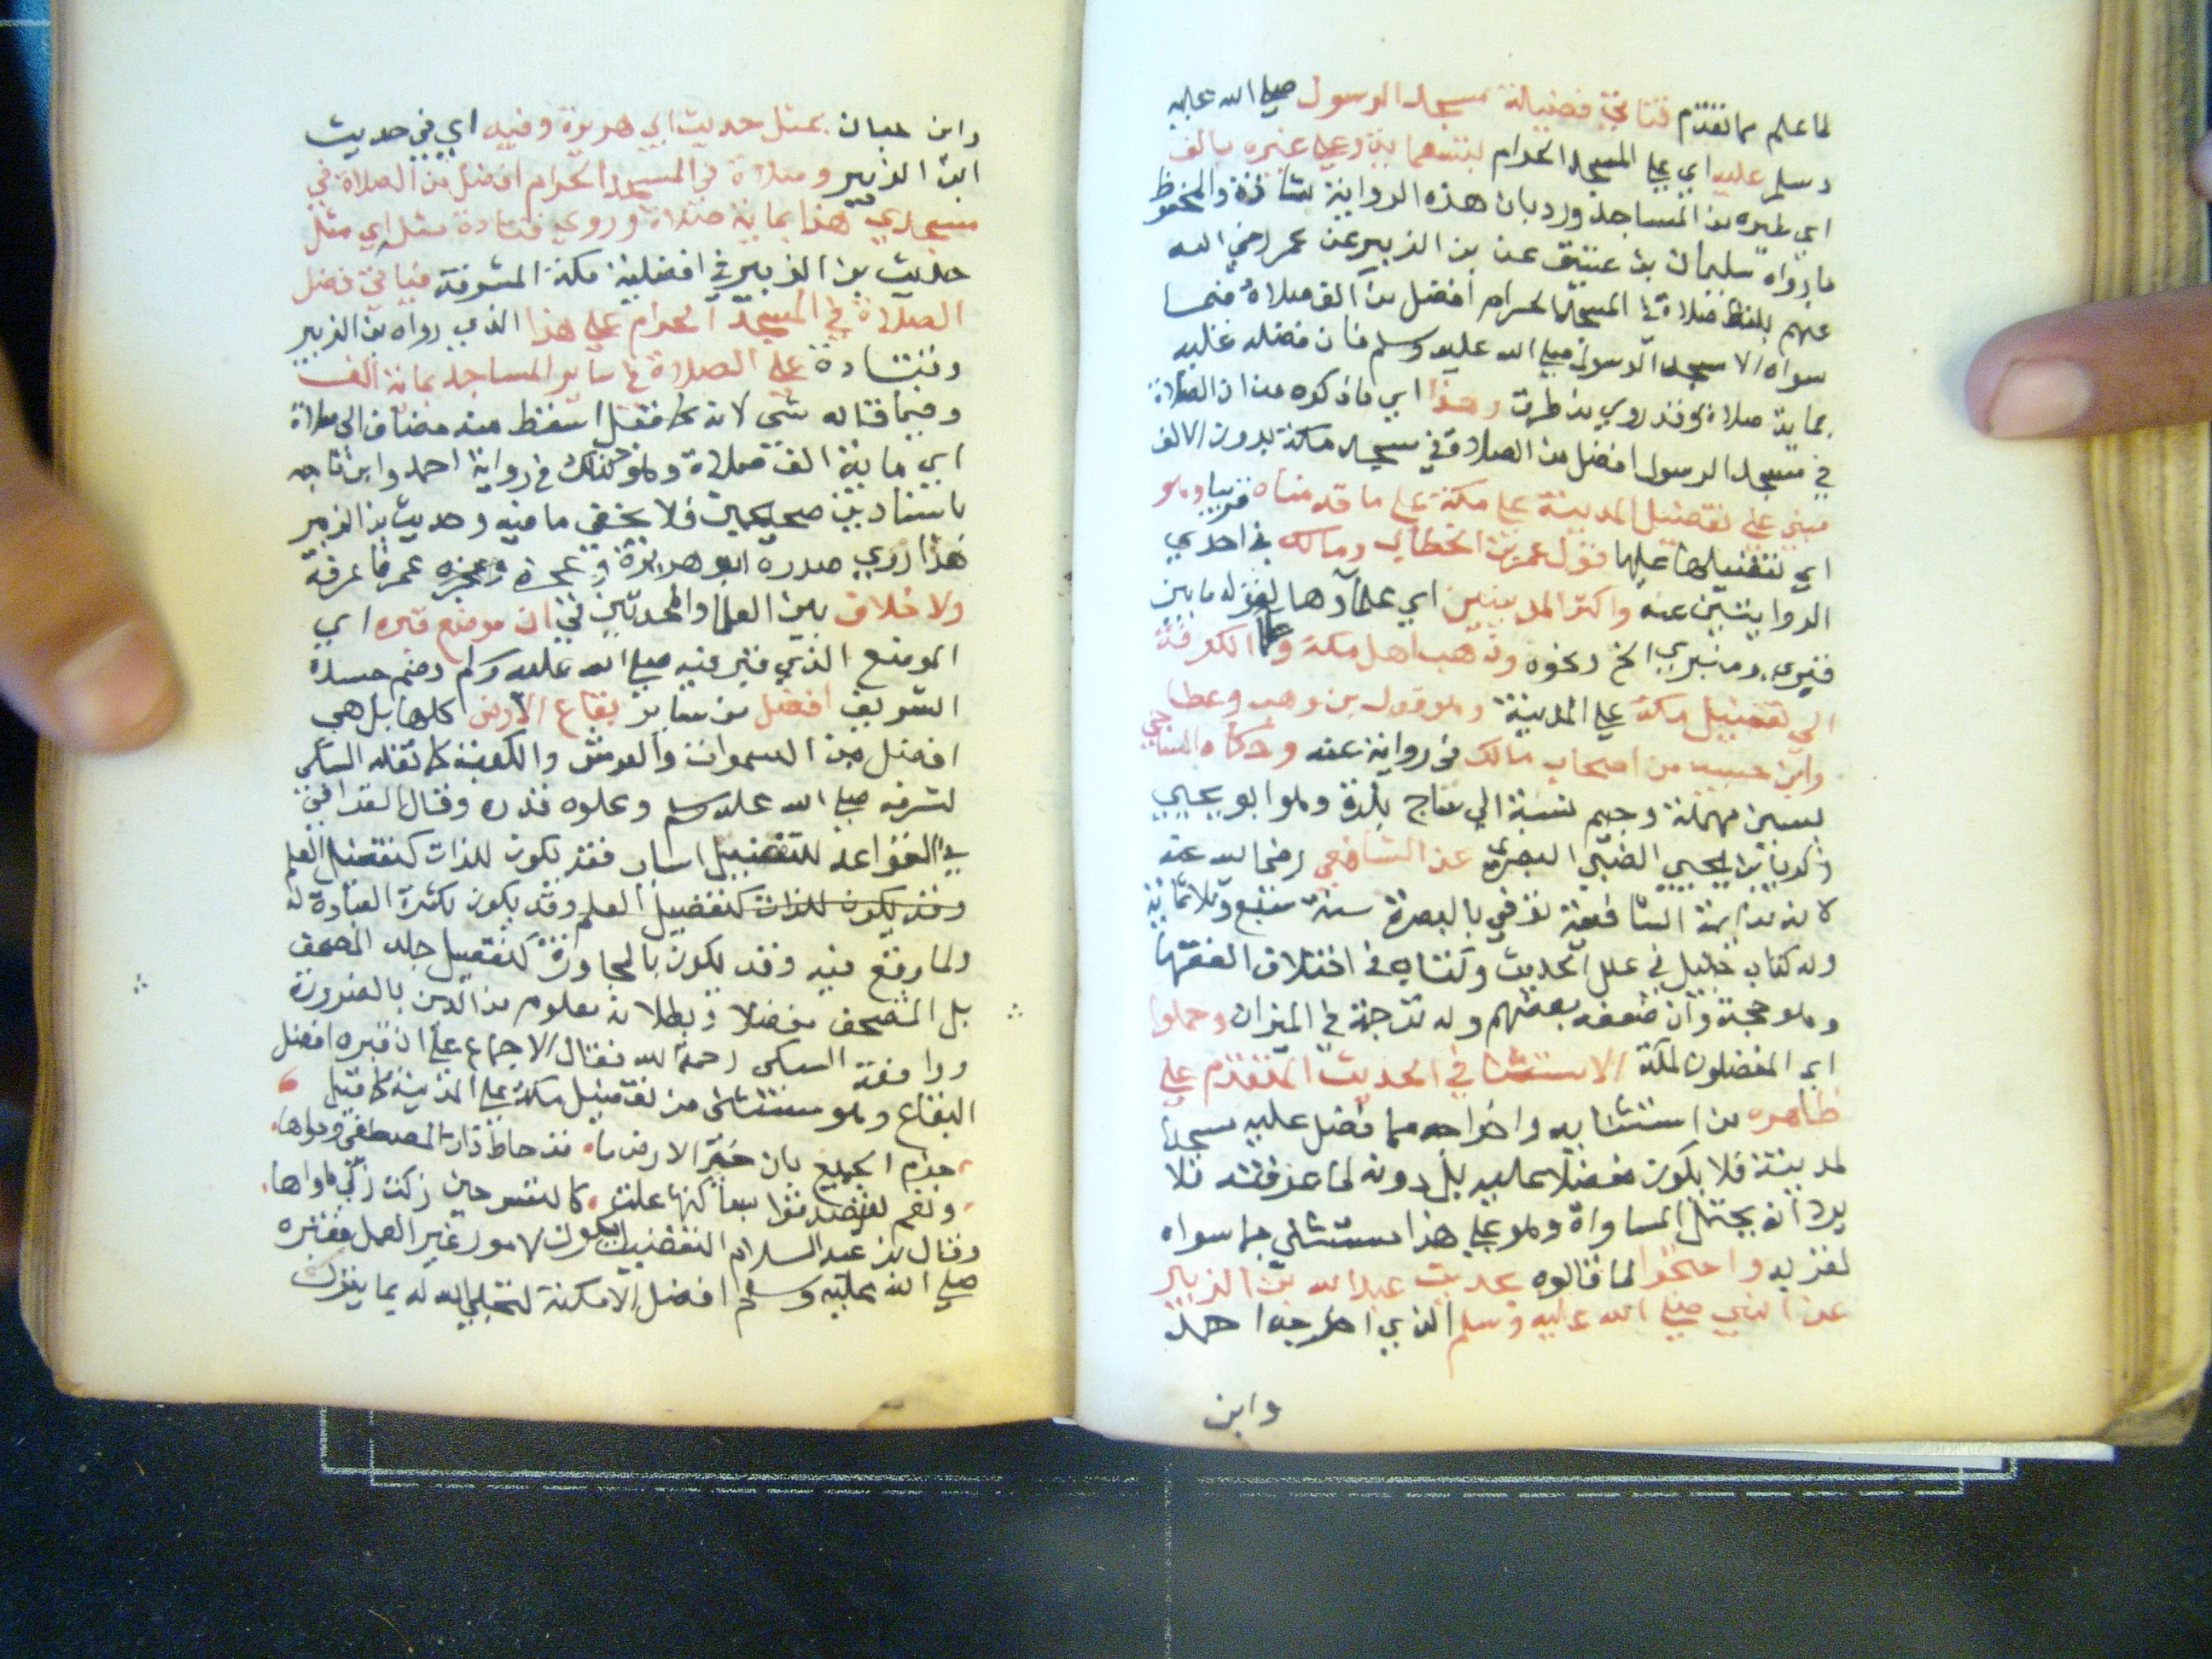 لما علم مما تقدم فتاتي فضيلة مسجد الرسول صلى الله عليه
وسلم عليه اي على المسجد الحرام بتسعماية وعلى غيره بالف
اي غيره من المساجد ورد بان هذه الرواية شاذة والمحفوظ
ما رواه سليمان بن عتيق عن بن الزبير عن عمر رضي الله
عنهم بلفظ صلاة في المسجد الحرام افضل من الف صلاة فيما
سواه الا مسجد الرسول صلى الله عليه وسلم فان فضله عليه
بماية صلاة وقد روي من طرق وهذا اي ما ذكوه من ان الصلاة
في مسجد الرسول افضل من الصلاة في مسجد مكة بدون الالف
مبني على تفضيل المدينة على مكة على ما قدمناه قريبا وهو
اي تفضيلها عليها قول عمر بن الخطاب ومالك في احدي
الروايتين عنه واكثر المدينيين اي علمآوها لقوله ما بين
قبري ومنبري الخ ونحوه وذهب اهل مكة وعلما الكوفة
الي تفضيل مكة على المدينة وهو قول بن وهب وعطا
وابن حبيب من اصحاب مالك في رواية عنه وحكاه الساجي
بسين مهملة وجيم نسبة الي ساج بلدة وهو ابو يحيي
زكريا بن يحيي الضبي البصري عن الشافعي رضي الله عنه
لانه من ايمة الشافعية توفي بالبصرة سنة سبع وثلاثماية
وله كتاب جليل في علل الحديث وكتاب في اختلاف الفقها
وهو حجة وان ضعفه بعضهم وله ترجمة في الميزان وحملوا
اي المفضلون لمكة الاستثنا في الحديث المتقدم على
ظاهره من استثنايه واخراجه مما فضل عليه مسجد
لمدينة فلا يكون مفضلا عليه بل دونه لما عرفته فلا
يرد انه يحتمل المساواة وهو على هذا مستثني مما سواه
لقربه واحتجوا لما قالوه بحديث عبد الله بن الزبير
عن النبي صلى الله عليه وسلم الذي اخرجه احمد
وابن
وابن حبان بمثل حديث ابي هريرة وفيه اي في حديث
ابن الزبير وصلاة في المسجد الحرام افضل من الصلاة في
مسجدي هذا بماية صلاة وروي قتادة مثله اي مثل
حديث بن الزبير في افضلية مكة المشرفة فياتي فضل
الصلاة في المسجد الحرام على هذا الذي رواه بن الزبير
وقتادة على الصلاة في ساير المساجد بماية الف
وفيما قاله شي لانه كما قيل اسقط منه مضاف الي صلاة
اي ماية الف صلاة وهو كذلك في رواية احمد وابن ماجه
باسنادين صحيحين فلا يخفي ما فيه وحديث بن الزبير
هذا روي صدره ابو هريرة وغيره عمر فاعرفة
ولا خلاف بين العلما والمحدثين في ان موضع قبره اي
الموضع الذي قبر فيه صلى الله عليه وسلم وضم جسده
الشريف افضل من ساير بقاع الارض كلها بل هي
افضل من السموات والعرش والكعبة كما نقله السبكي
لشرفه صلى الله عليه وسلم وعلوه قدره وقال القرافي
في القواعد للتفضيل اسباب فقد يكون للذات كتفضيل العلم
وقد يكون للذات كتفضيل العلم وقد يكون بكثرة العبادة له
ولما وقع فيه وقد يكون بالمجاورة كتفضيل جلد المصحف
بل المصحف مفضلا وبطلانه معلوم من الدين بالضرورة
ووافقه السبكي رحمه الله فقال الاجماع على ان قبره افضل
البقاع وهو مستثني من تفضيل مكة على المدينة كما قيل
جزم الجميع بان خير الارض ما قد حاط ذات المصطفي وحواها
ونعم لقد صدقوا بساكنها علت كالنفس حين زكت زكي ماواها
وقال بن عبد السلام التفضيل يكون لامور غير العمل فقبره
صلى الله عليه وسلم افضل الامكنة لتجلي الله له بما ينزل